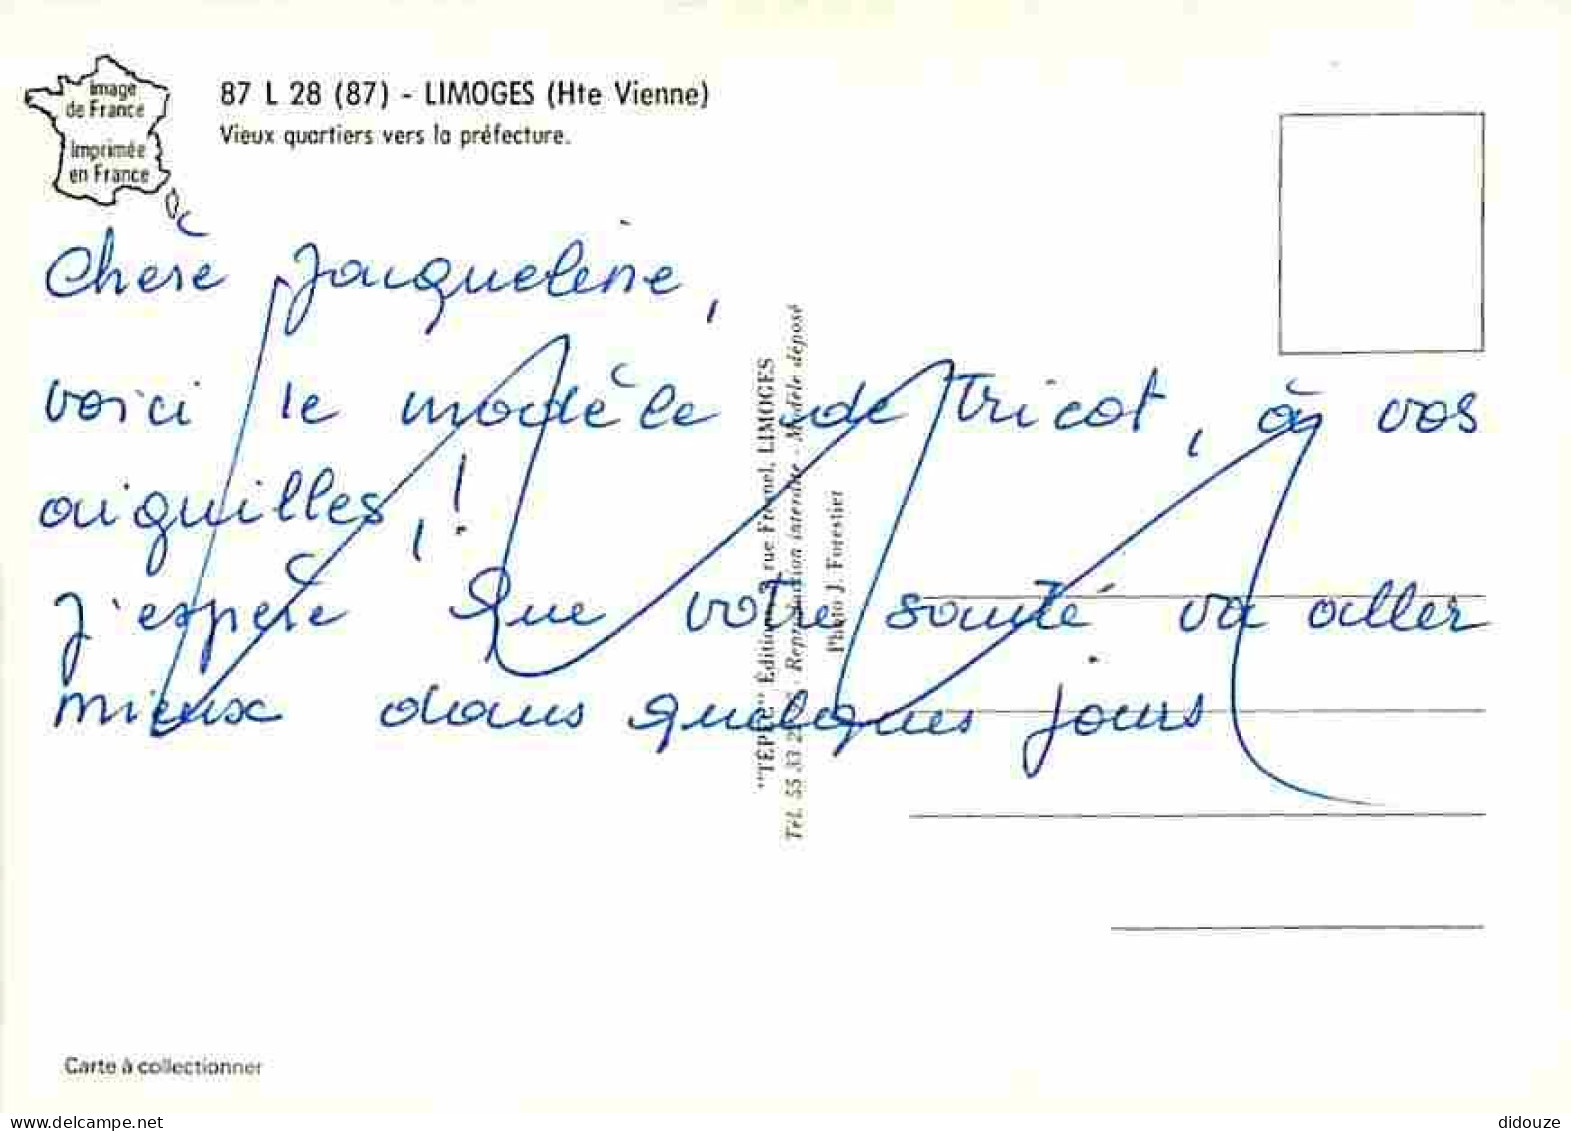 Image
de France
Imprimée
en France
87 L 28 (87) - LIMOGES (Hte Vienne)
Vieux quartiers vers la préfecture.
Chère Jacqueline,
voici le modèle de tricot, à vos
aiguilles, !
J'espère que votre santé va aller
mieux dans quelques jours
"TÉPÉE" Éditions, rue Fresnel, LIMOGES
Tél. 55 33 - Reproduction interdite - Modèle déposé
Photo J. Forestier
Carte à collectionner
delcampe.net
didouze